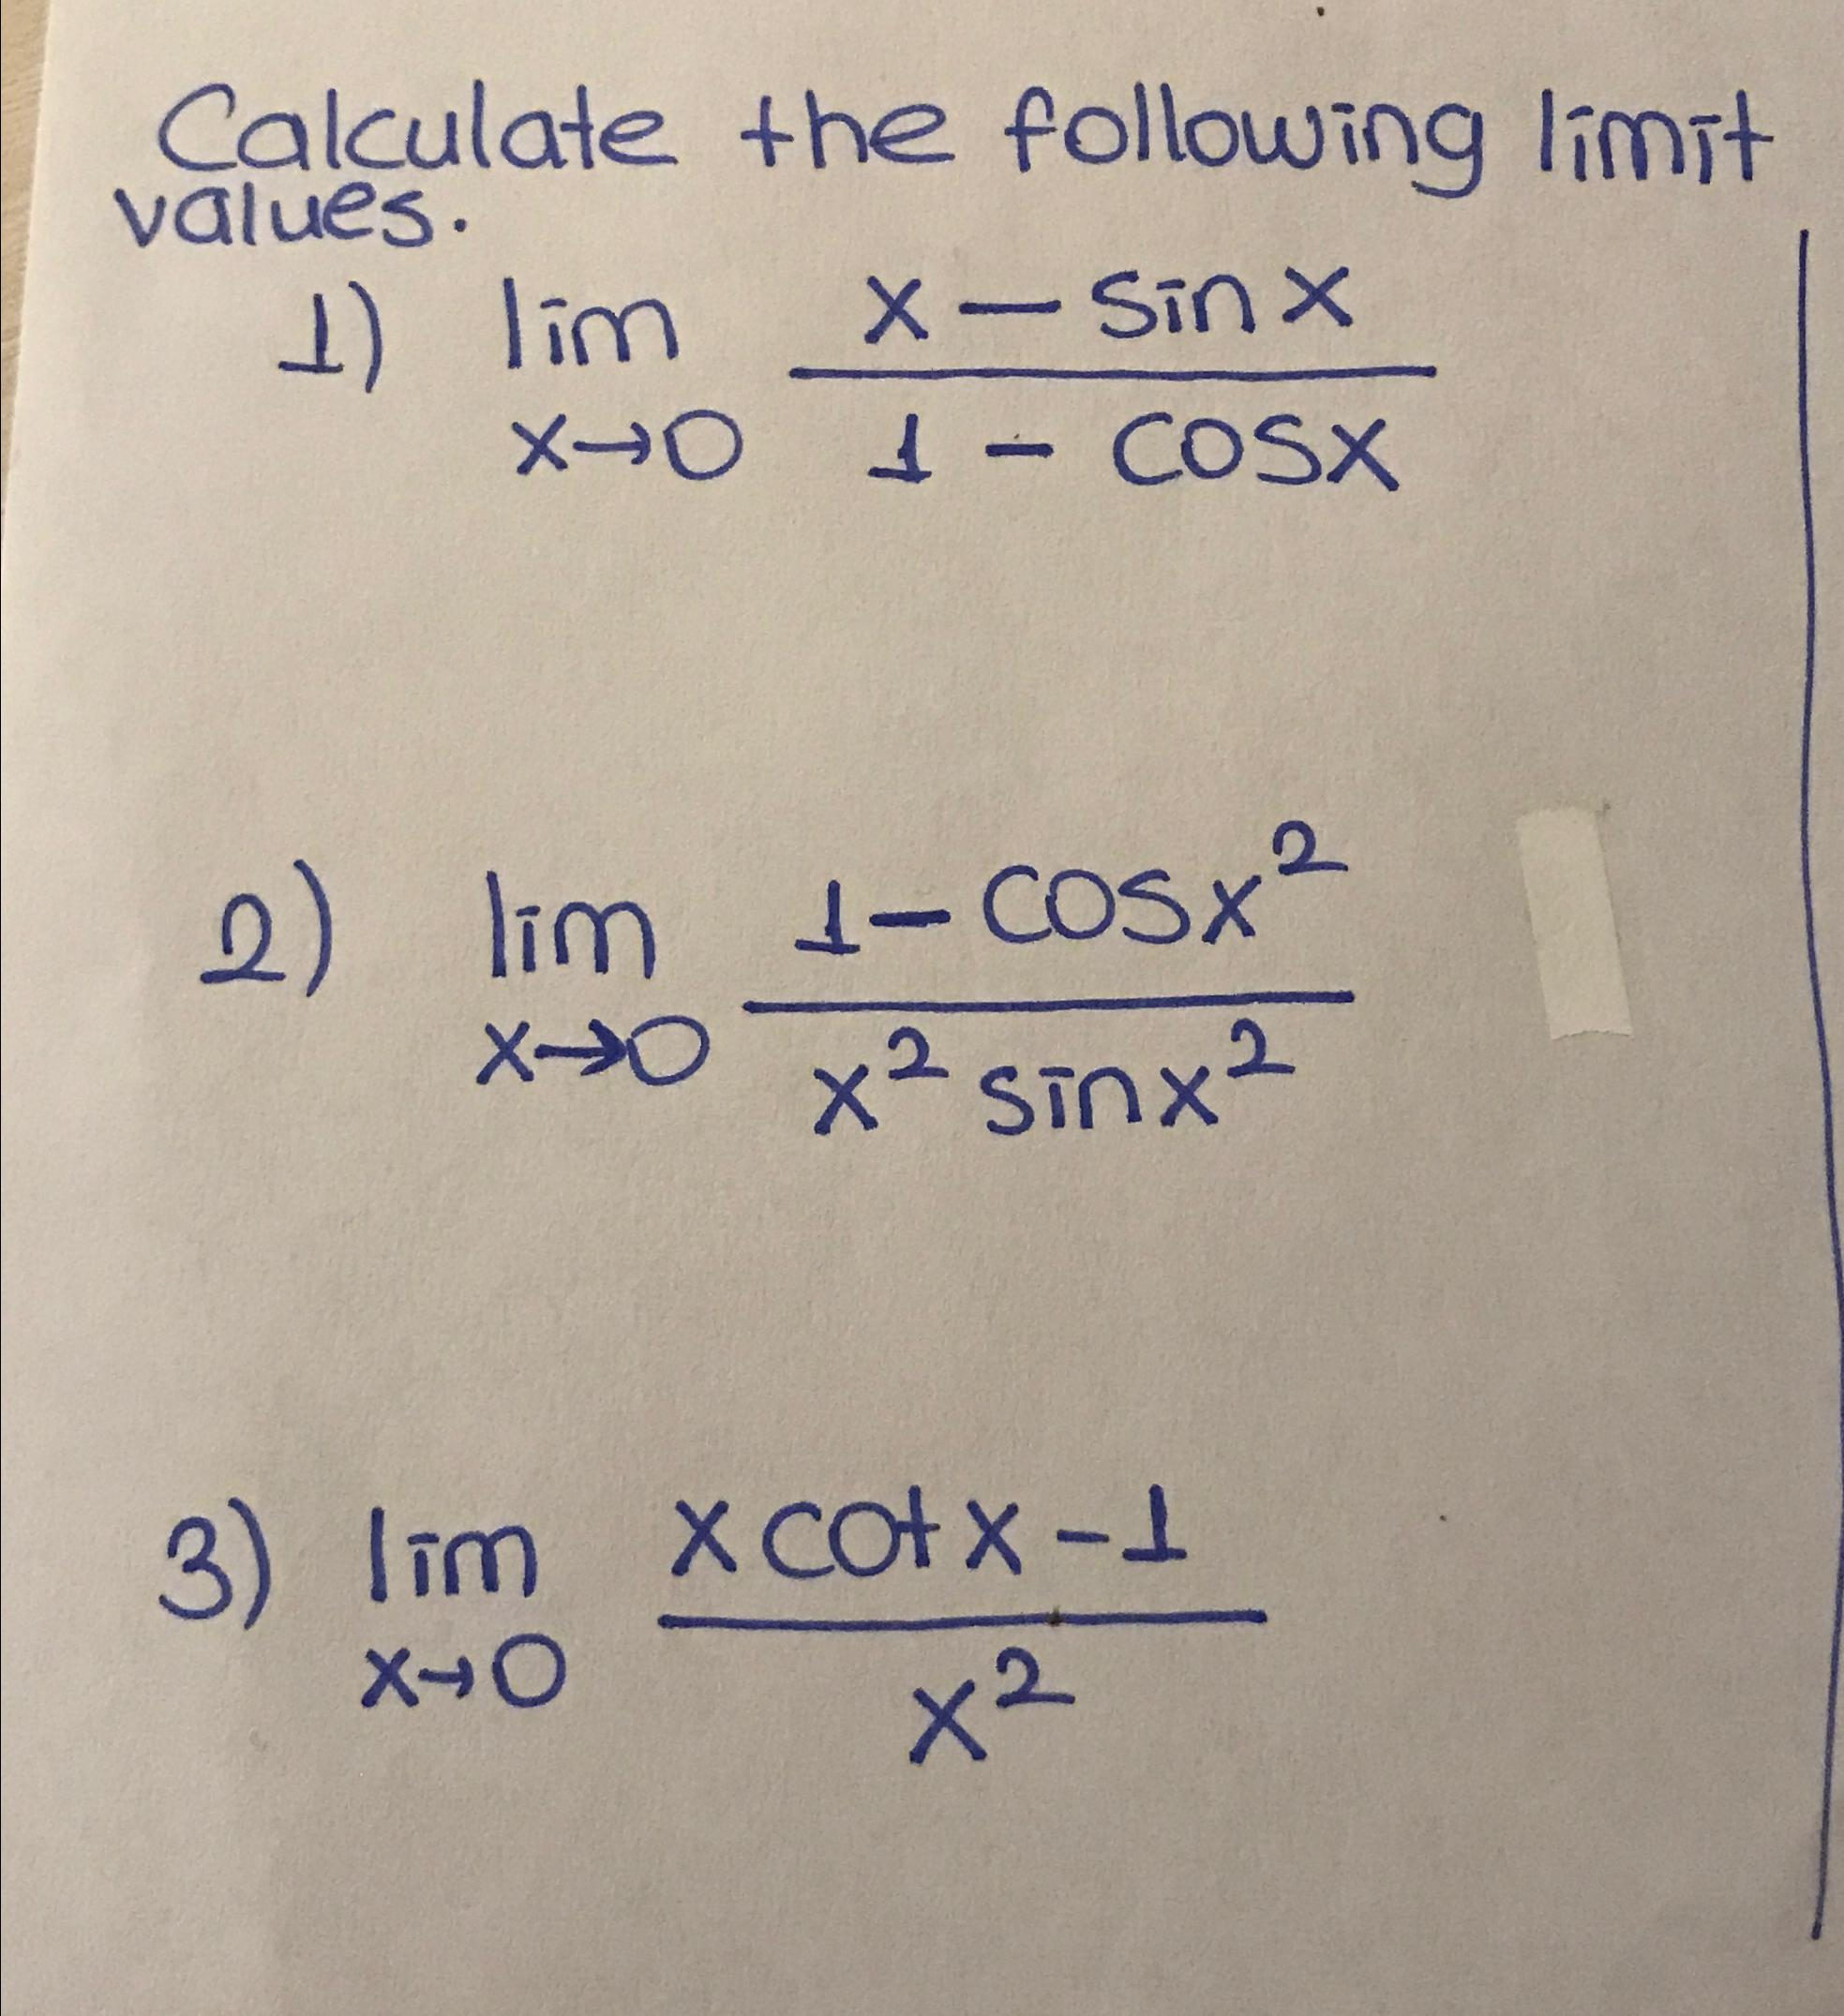 Calculate the following limit
values.
1) lim x - sin x
x→0 1 - cosx
2) lim 1 - cosx²
x→0 x² sinx²
3) lim x cotx - 1
x→0 x²